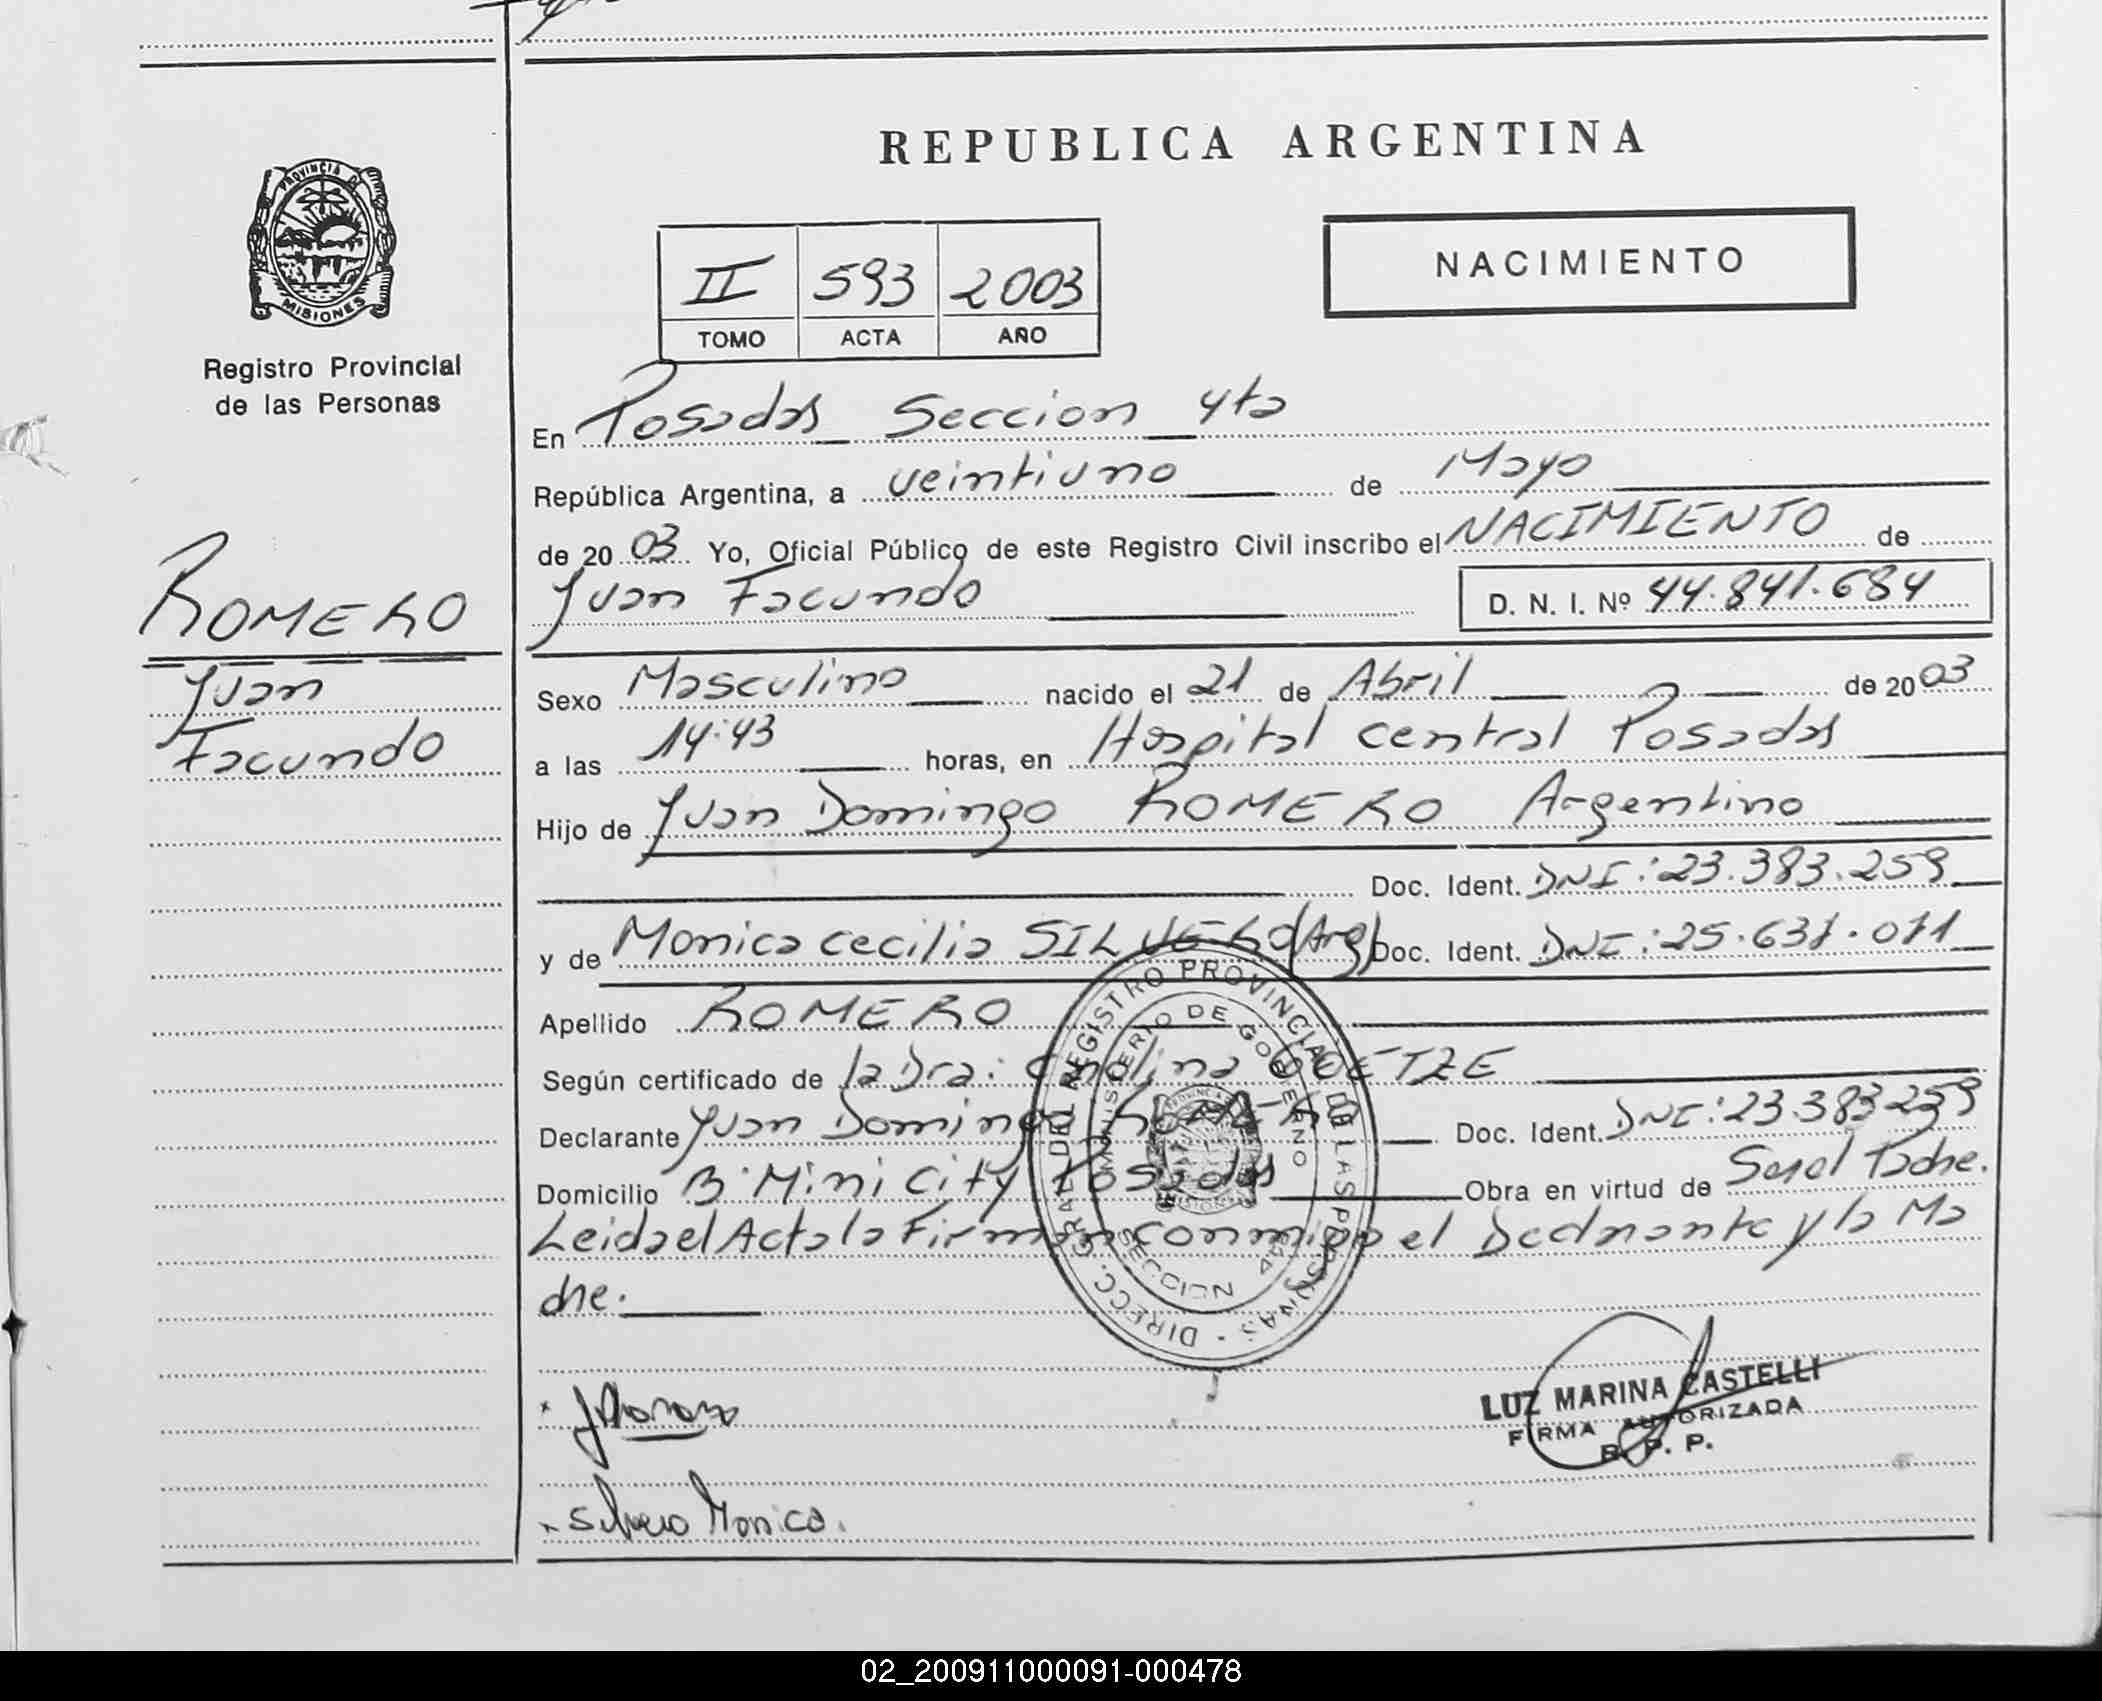 REPUBLICA ARGENTINA
PROVINCIA DE
MISIONES
Registro Provincial
de las Personas
II 593 2003
TOMO ACTA AÑO
NACIMIENTO
En Posadas Seccion 4ta
República Argentina, a veintiuno de Mayo
de 2003 Yo, Oficial Público de este Registro Civil inscribo el NACIMIENTO de
Juan Facundo D. N. I. Nº 44.841.684
ROMERO
Juan
Facundo
Sexo Masculino nacido el 21 de Abril de 2003
a las 14:43 horas, en Hospital central Posadas
Hijo de Juan Domingo ROMERO Argentino
Doc. Ident. DNI: 23.383.259
y de Monica cecilia SILVERO (Arg) Doc. Ident. DNI: 25.631.011
Apellido ROMERO
Según certificado de la Dra: GOETZE
Declarante Juan Domingo Romero Doc. Ident. DNI: 23.383 259
Domicilio B. Mini City Posadas Obra en virtud de Ser el Padre.
Leida el Acta la Firman conmigo el Declarante y la Ma
dre.
DIRECC. GRAL DEL REGISTRO PROVINCIAL DE LAS PERSONAS
MINISTERIO DE GOBIERNO
SECCION 4ª
LUZ MARINA CASTELLI
FIRMA AUTORIZADA
R. P. P.
Silvero Monica.
02_200911000091-000478